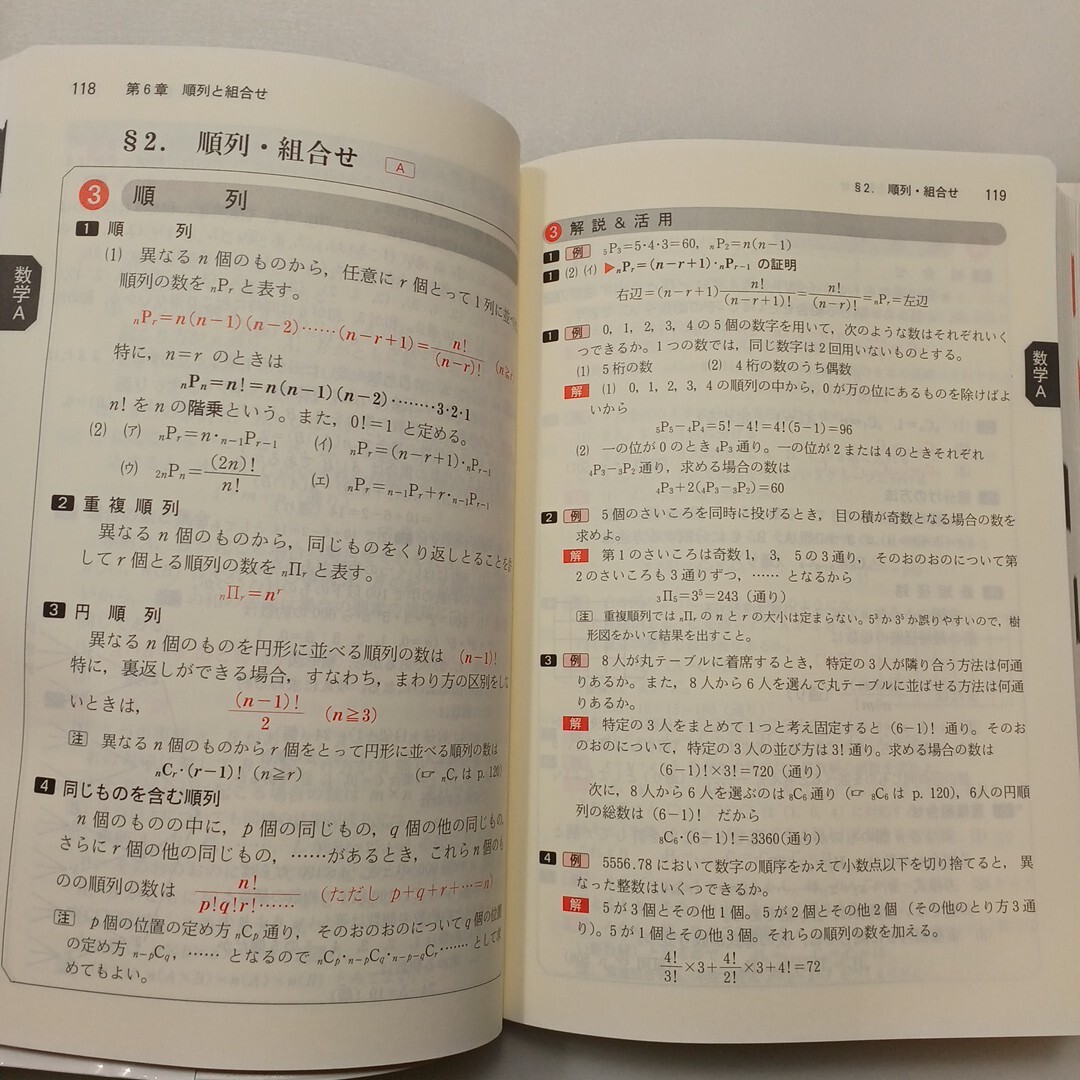 118 第6章 順列と組合せ
§2. 順列・組合せ A
3 順 列
1 順 列
(1) 異なる n 個のものから，任意に r 個とって1列に並べ
順列の数を nPr と表す。
nPr＝n(n−1)(n−2)……(n−r+1)＝n!/(n−r)! (n≧r
特に，n＝r のときは
nPn＝n!＝n(n−1)(n−2)………3・2・1
n! を n の階乗という。また，0!＝1 と定める。
(2) (ア) nPr＝n・n−1Pr−1 (イ) nPr＝(n−r+1)・nPr−1
(ウ) 2nPn＝(2n)!/n! (エ) nPr＝n−1Pr+r・n−1Pr−1
2 重複順列
異なる n 個のものから，同じものをくり返しとることを許
して r 個とる順列の数を nΠr と表す。
nΠr＝n^r
3 円 順 列
異なる n 個のものを円形に並べる順列の数は (n−1)!
特に，裏返しができる場合，すなわち，まわり方の区別をしな
いときは， (n−1)!/2 (n≧3)
注 異なる n 個のものから r 個をとって円形に並べる順列の数は
nCr・(r−1)! (n≧r) (☞ nCr は p. 120)
4 同じものを含む順列
n 個のものの中に，p 個の同じもの，q 個の他の同じもの，
さらに r 個の他の同じもの，……があるとき，これら n 個のも
のの順列の数は n!/p!q!r!…… (ただし p+q+r+…＝n)
注 p 個の位置の定め方 nCp 通り，そのおのおのについて q 個の位置
の定め方 n−pCq，…… となるので nCp・n−pCq・n−p−qCr・…… として求
めてもよい。
数学A
§2. 順列・組合せ 119
3 解説＆活用
1 例 5P3＝5・4・3＝60，nP2＝n(n−1)
1 (2) (イ) ▶nPr＝(n−r+1)・nPr−1 の証明
右辺＝(n−r+1) n!/(n−r+1)!＝n!/(n−r)!＝nPr＝左辺
1 例 0，1，2，3，4 の5個の数字を用いて，次のような数はそれぞれいく
つできるか。1つの数では，同じ数字は2回用いないものとする。
(1) 5桁の数 (2) 4桁の数のうち偶数
解 (1) 0，1，2，3，4 の順列の中から，0が万の位にあるものを除けばよ
いから
5P5−4P4＝5!−4!＝4!(5−1)＝96
(2) 一の位が0のとき 4P3 通り。一の位が2または4のときそれぞれ
4P3−3P2 通り，求める場合の数は
4P3+2(4P3−3P2)＝60
2 例 5個のさいころを同時に投げるとき，目の積が奇数となる場合の数を
求めよ。
解 第1のさいころは奇数1，3，5の3通り，そのおのおのについて第
2のさいころも3通りずつ，…… となるから
3Π5＝3^5＝243（通り）
注 重複順列では nΠr の n と r の大小は定まらない。5^3か3^5か誤りやすいので，樹
形図をかいて結果を出すこと。
3 例 8人が丸テーブルに着席するとき，特定の3人が隣り合う方法は何通
りあるか。また，8人から6人を選んで丸テーブルに並ばせる方法は何通
りあるか。
解 特定の3人をまとめて1つと考え固定すると (6−1)! 通り。そのお
のおのについて，特定の3人の並び方は3! 通り。求める場合の数は
(6−1)!×3!＝720（通り）
次に，8人から6人を選ぶのは 8C6 通り (☞ 8C6 は p. 120)，6人の円順
列の総数は (6−1)! だから
8C6・(6−1)!＝3360(通り)
4 例 5556.78 において数字の順序をかえて小数点以下を切り捨てると，異
なった整数はいくつできるか。
解 5が3個とその他1個。5が2個とその他2個（その他のとり方3通
り）。5が1個とその他3個。それらの順列の数を加える。
4!/3!×3+4!/2!×3+4!＝72
数学A